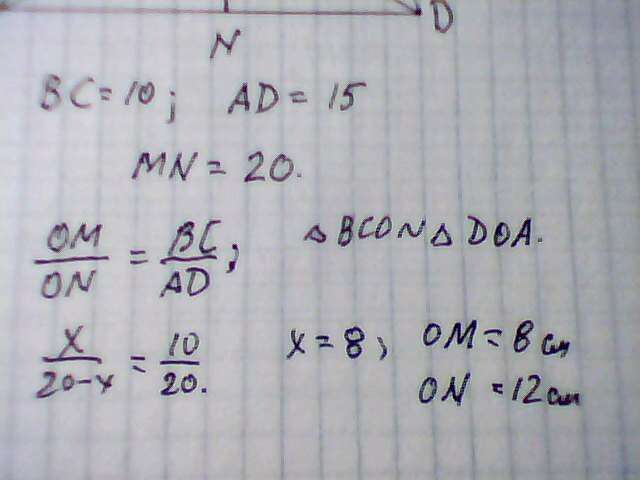 D
N
BC = 10; AD = 15
MN = 20.
OM/ON = BC/AD; △BCO N △DOA.
x/20-x = 10/20. x = 8; OM = 8 см
ON = 12 см